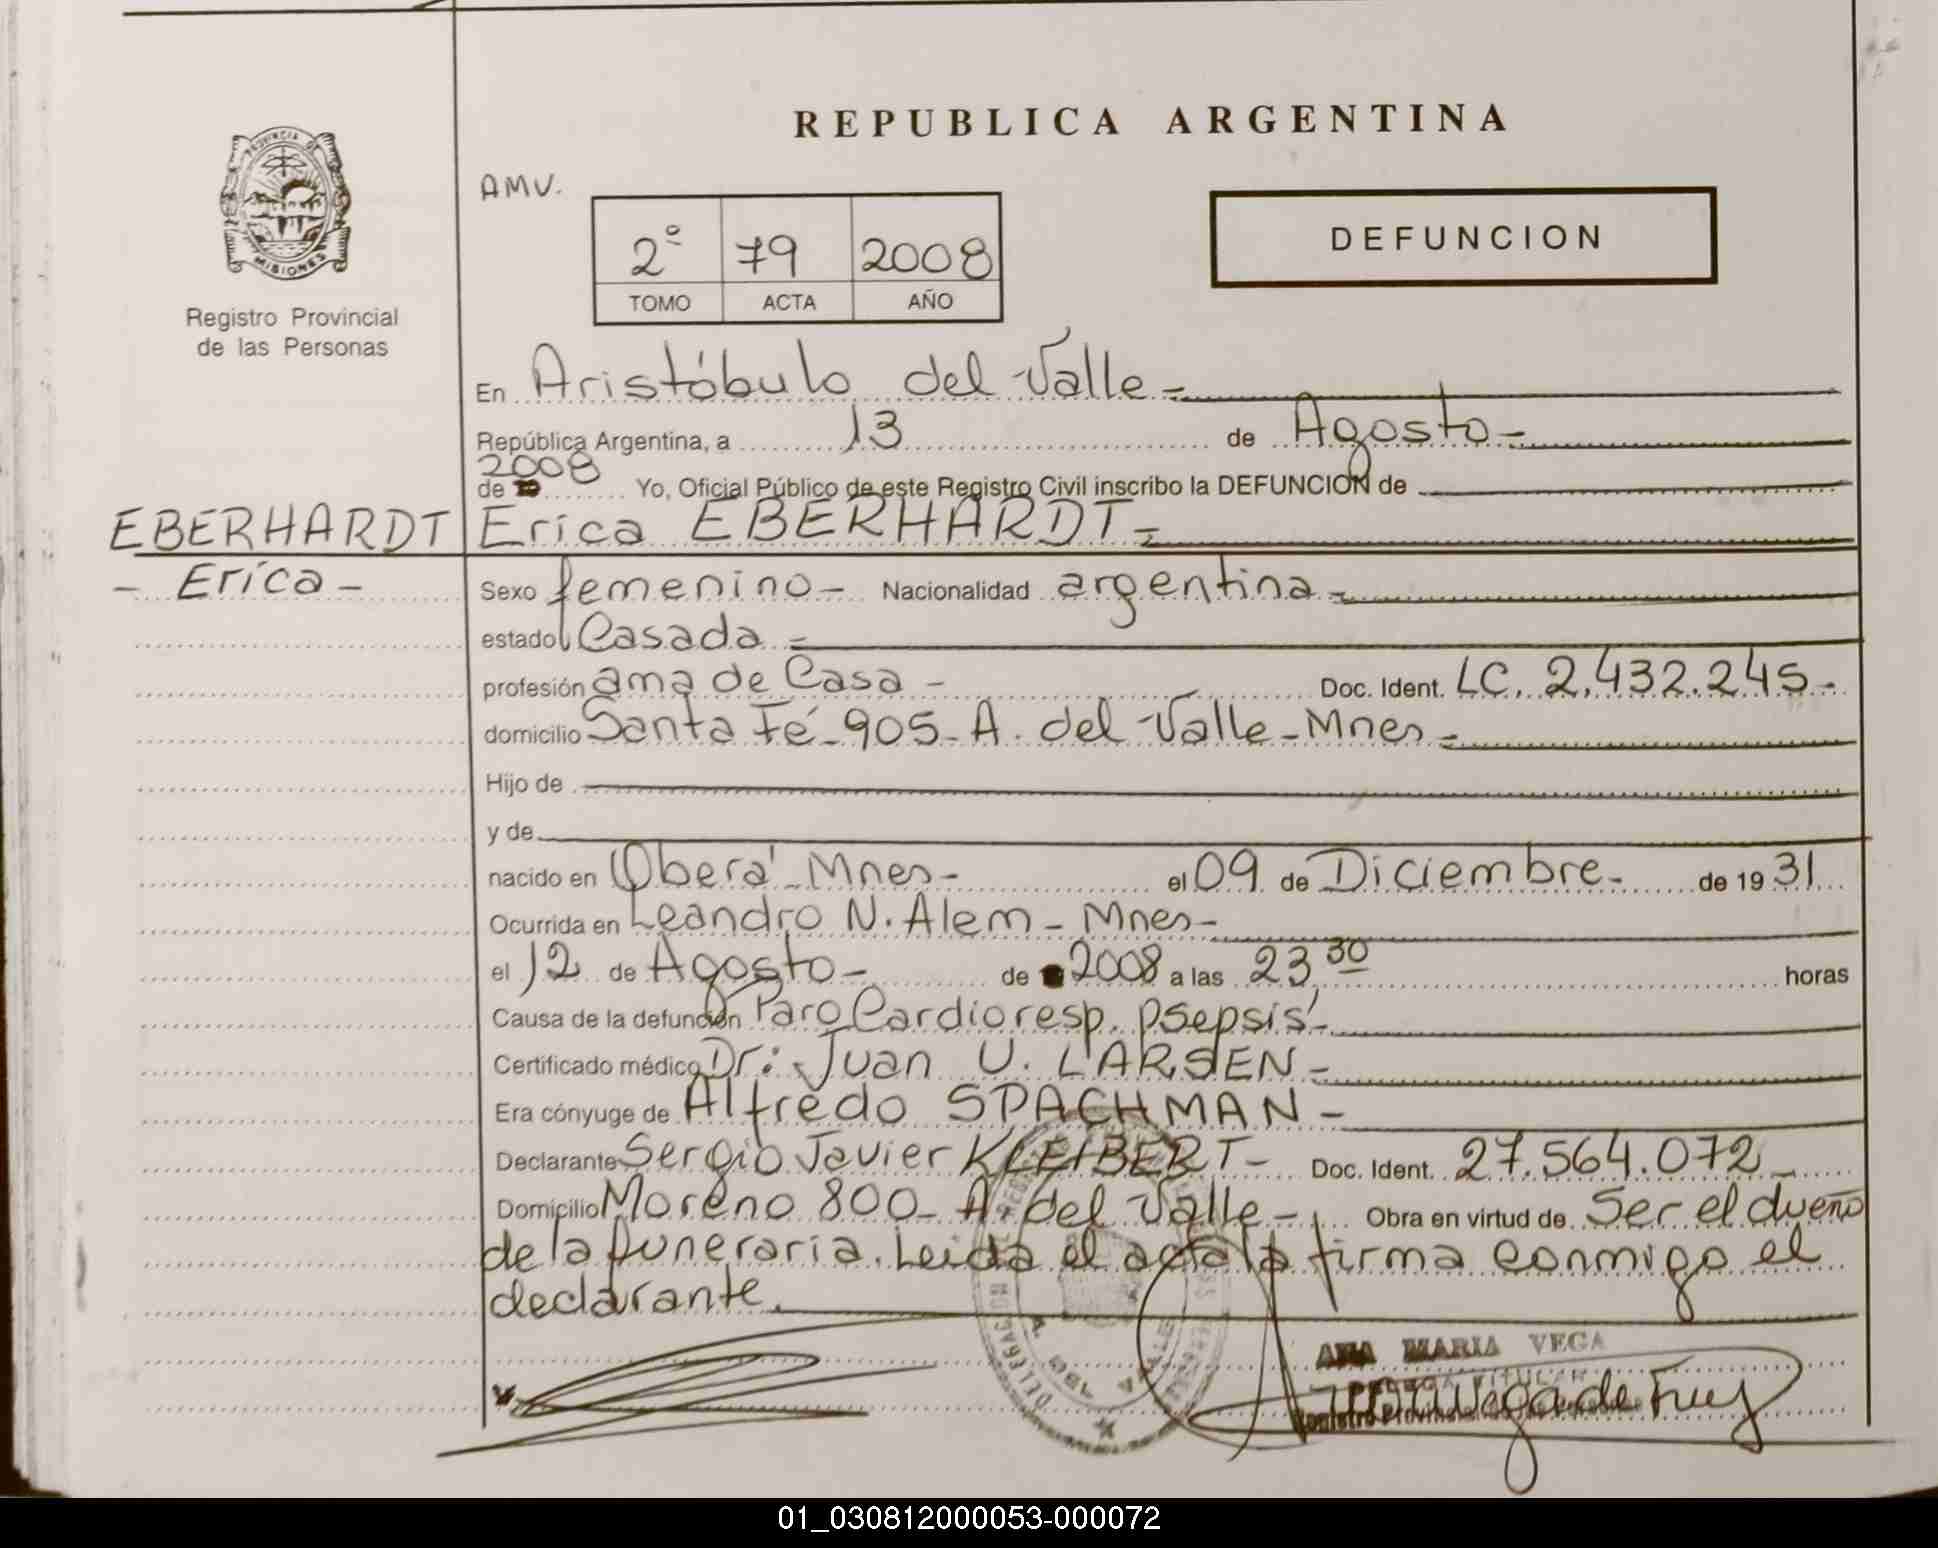 REPUBLICA ARGENTINA
PROVINCIA DE
MISIONES
Registro Provincial
de las Personas
AMV.
2º 79 2008
TOMO ACTA AÑO
DEFUNCION
En Aristóbulo del Valle -
República Argentina, a 13 de Agosto -
2008
de Yo, Oficial Público de este Registro Civil inscribo la DEFUNCION de
EBERHARDT Erica EBERHARDT -
- Erica -
Sexo femenino - Nacionalidad argentina -
estado Casada -
profesión ama de Casa - Doc. Ident. LC. 2.432.245 -
domicilio Santa Fé - 905 - A. del Valle - Mnes -
Hijo de
y de
nacido en Oberá - Mnes - el 09 de Diciembre - de 1931
Ocurrida en Leandro N. Alem - Mnes -
el 12 de Agosto - de 2008 a las 23 30 horas
Causa de la defunción Paro Cardioresp. psepsis -
Certificado médico Dr: Juan U. LARSEN -
Era cónyuge de Alfredo SPACHMAN -
Declarante Sergio Javier KLEIBERT - Doc. Ident. 27.564.072 -
Domicilio Moreno 800 - A. del Valle - Obra en virtud de Ser el dueño
de la funeraria. Leida el acta la firma conmigo el
declarante.
ANA MARIA VEGA
01_030812000053-000072